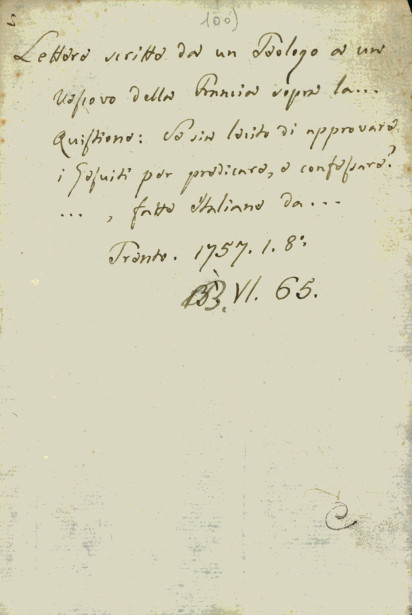 100)
Lettera scritta da un Teologo a un
Vescovo della Francia sopra la...
Quistione: Se sia lecito di approvare
i Gesuiti per predicare, e confessare?
... , fatta Italiana da...
Trento. 1757. 1. 8º.
VI. 65.
C